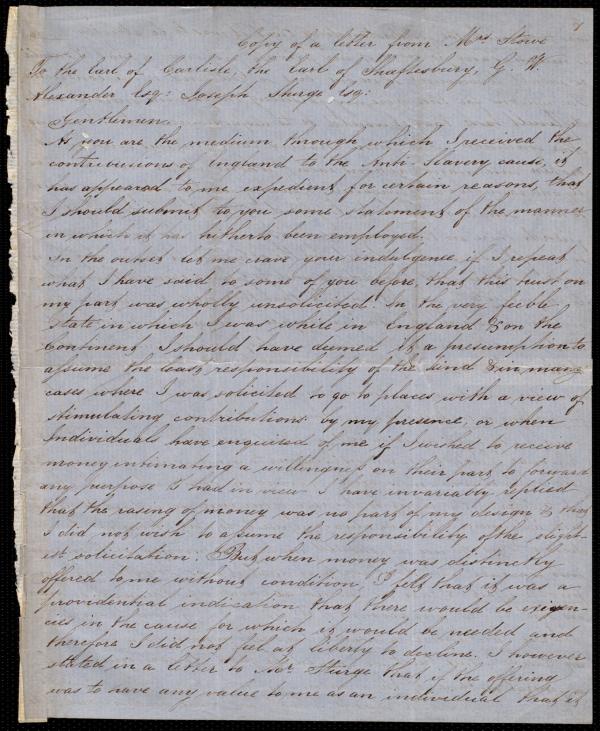 Copy of a letter from Mrs Stowe
To the Earl of Carlisle, the Earl of Shaftesbury, G. W.
Alexander Esq: Joseph Sturge Esq:
Gentlemen.
As you are the medium through which I received the
contributions of England to the Anti-Slavery cause, it
has appeared to me expedient for certain reasons, that
I should submit to you some statement of the manner
in which it has hitherto been employed.
In the outset let me crave your indulgence if I repeat
what I have said to some of you before, that this trust on
my part was wholly unsolicited. In the very feeble
state in which I was while in England & on the
Continent I should have deemed it a presumption to
assume the least responsibility of the kind & in many
cases where I was solicited to go to places with a view of
stimulating contributions by my presence, or when
Individuals have enquired of me if I wished to receive
money intimating a willingness on their part to forward
any purpose I had in view I have invariably replied
that the rasing of money was no part of my design & that
I did not wish to assume the responsibility of the slight-
est solicitation. But when money was distinctly
offered to me without condition I felt that it was a
providential indication that there would be exigen-
cies in the cause for which it would be needed and
therefore I did not feel at liberty to decline. I however
stated in a letter to Mr Sturge that if the offering
was to have any value to me as an individual that it